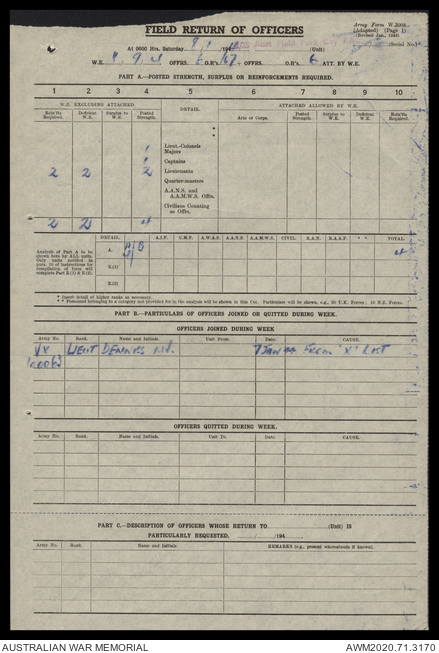 FIELD RETURN OF OFFICERS
Army Form W.3008
(Adapted) (Page 1)
(Revised Jan., 1943)
At 0600 Hrs. Saturday 8 1 194 (Unit) (Serial No.)
W.E. OFFRS. O.R's. OFFRS. O.R's. 6 ATT. BY W.E.
PART A.—POSTED STRENGTH, SURPLUS OR REINFORCEMENTS REQUIRED.
1 2 3 4 5 6 7 8 9 10
W.E. EXCLUDING ATTACHED. DETAIL. ATTACHED ALLOWED BY W.E.
Rein'fts Required. Deficient W.E. Surplus to W.E. Posted Strength. Arms or Corps. Posted Strength. Surplus to W.E. Deficient W.E. Rein'fts Required.
*
*
Lieut.-Colonels
1 Majors
1 Captains
2 2 2 Lieutenants
Quarter-masters
A.A.N.S. and
A.A.M.W.S. Offrs.
Civilians Counting
as Offrs.
2 2 4
DETAIL. A.I.F. C.M.F. A.W.A.S. A.A.N.S. A.A.M.W.S. CIVIL. R.A.N. R.A.A.F. * * TOTAL.
Analysis of Part A to be
shown here by ALL units.
Only units notified in
para. 10 of instructions for
compilation of form will
complete Part E(1) & E(2).
A. 4
E.(1)
E.(2)
* Insert detail of higher ranks as necessary.
* * Personnel belonging to a category not provided for in the analysis will be shown in this Col. Particulars will be shown, e.g., 20 U.K. Forces; 10 N.Z. Forces.
PART B.—PARTICULARS OF OFFICERS JOINED OR QUITTED DURING WEEK.
OFFICERS JOINED DURING WEEK
Army No. Rank. Name and Initials. Unit From. Date. CAUSE.
VX LIEUT 7 JAN 44 FROM 'X' LIST
OFFICERS QUITTED DURING WEEK.
Army No. Rank. Name and Initials. Unit To. Date. CAUSE.
PART C.—DESCRIPTION OF OFFICERS WHOSE RETURN TO (Unit) IS
PARTICULARLY REQUESTED. / /194
Army No. Rank. Name and Initials. REMARKS (e.g., present whereabouts if known).
AUSTRALIAN WAR MEMORIAL AWM2020.71.3170